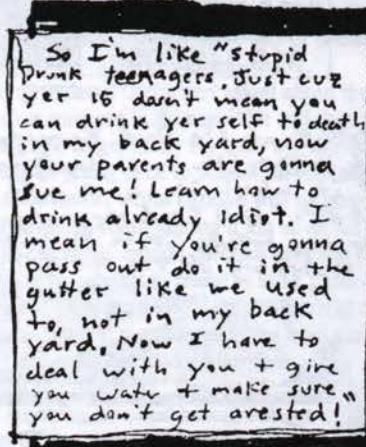 So I'm like "stupid
Drunk teenagers. Just cuz
yer 15 dosn't mean you
can drink yer self to death
in my back yard, now
your parents are gonna
sue me! Learn how to
drink already idiot. I
mean if you're gonna
pass out do it in the
gutter like we used
to, not in my back
yard. Now I have to
deal with you + give
you water + make sure
you don't get arested!"